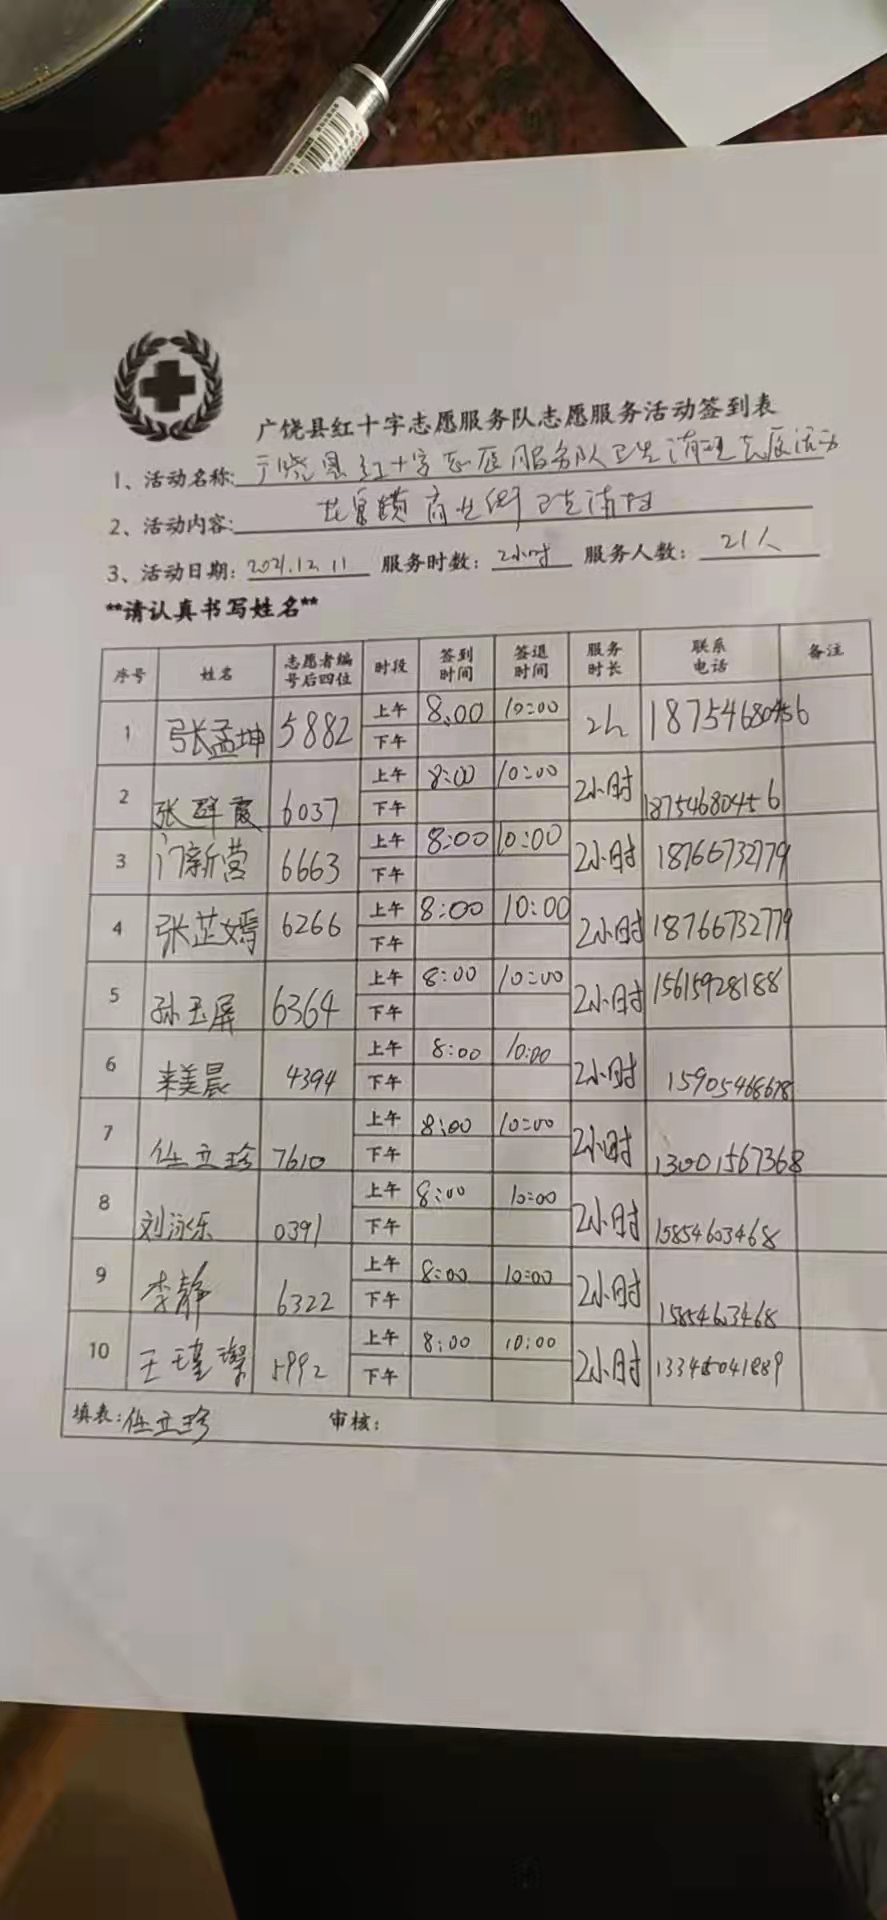 广饶县红十字志愿服务队志愿服务活动签到表
1、活动名称: 广饶县红十字志愿服务队卫生清理志愿活动
2、活动内容: 花官镇商业街卫生清扫
3、活动日期: 2021.12.11 服务时数: 2小时 服务人数: 21人
**请认真书写姓名**
序号 姓名 志愿者编号后四位 时段 签到时间 签退时间 服务时长 联系电话 备注
1 张孟坤 5882 上午 8:00 10:00 2h 18754680456
下午
2 张群霞 6037 上午 8:00 10:00 2小时 18754680456
下午
3 门新营 6663 上午 8:00 10:00 2小时 18766732779
下午
4 张芷嫣 6266 上午 8:00 10:00 2小时 18766732779
下午
5 孙玉屏 6364 上午 8:00 10:00 2小时 15615928188
下午
6 来美晨 4394 上午 8:00 10:00 2小时 15905468678
下午
7 任立珍 7610 上午 8:00 10:00 2小时 13001567368
下午
8 刘泳乐 0391 上午 8:00 10:00 2小时 15854603468
下午
9 李静 6322 上午 8:00 10:00 2小时 15854603468
下午
10 王瑾璨 5992 上午 8:00 10:00 2小时
下午
填表: 任立珍 审核: